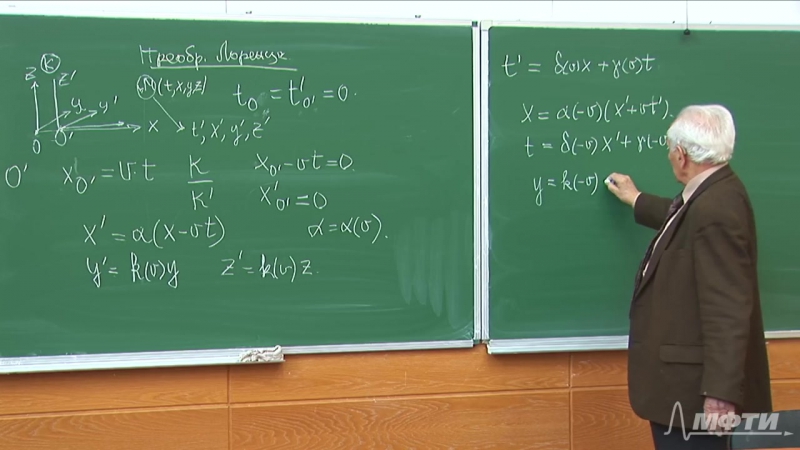 Преобр. Лоренца
K
z z' y y' x
O O'
N(t,x,y,z)
t', x', y', z'
t_O = t'_{O'} = 0.
O' x'_{O'} = v·t K/K' x_O' - vt = 0.
x'_{O'} = 0
x' = α(x-vt) α = α(v).
y' = k(v)y z' = k(v)z.
t' = δ(v)x + γ(v)t
x = α(-v)(x'+vt').
t = δ(-v)x' + γ(-v
y = k(-v)
МФТИ